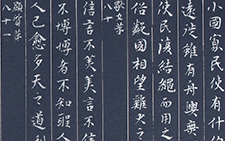 小國寡民使有什
遠徙雖有舟輿
使民復結繩而用之
俗鄰國相望雞犬之
八十
信言不美美言不信
不博博者不知聖人
人己愈多天之道利
顯質
八十一